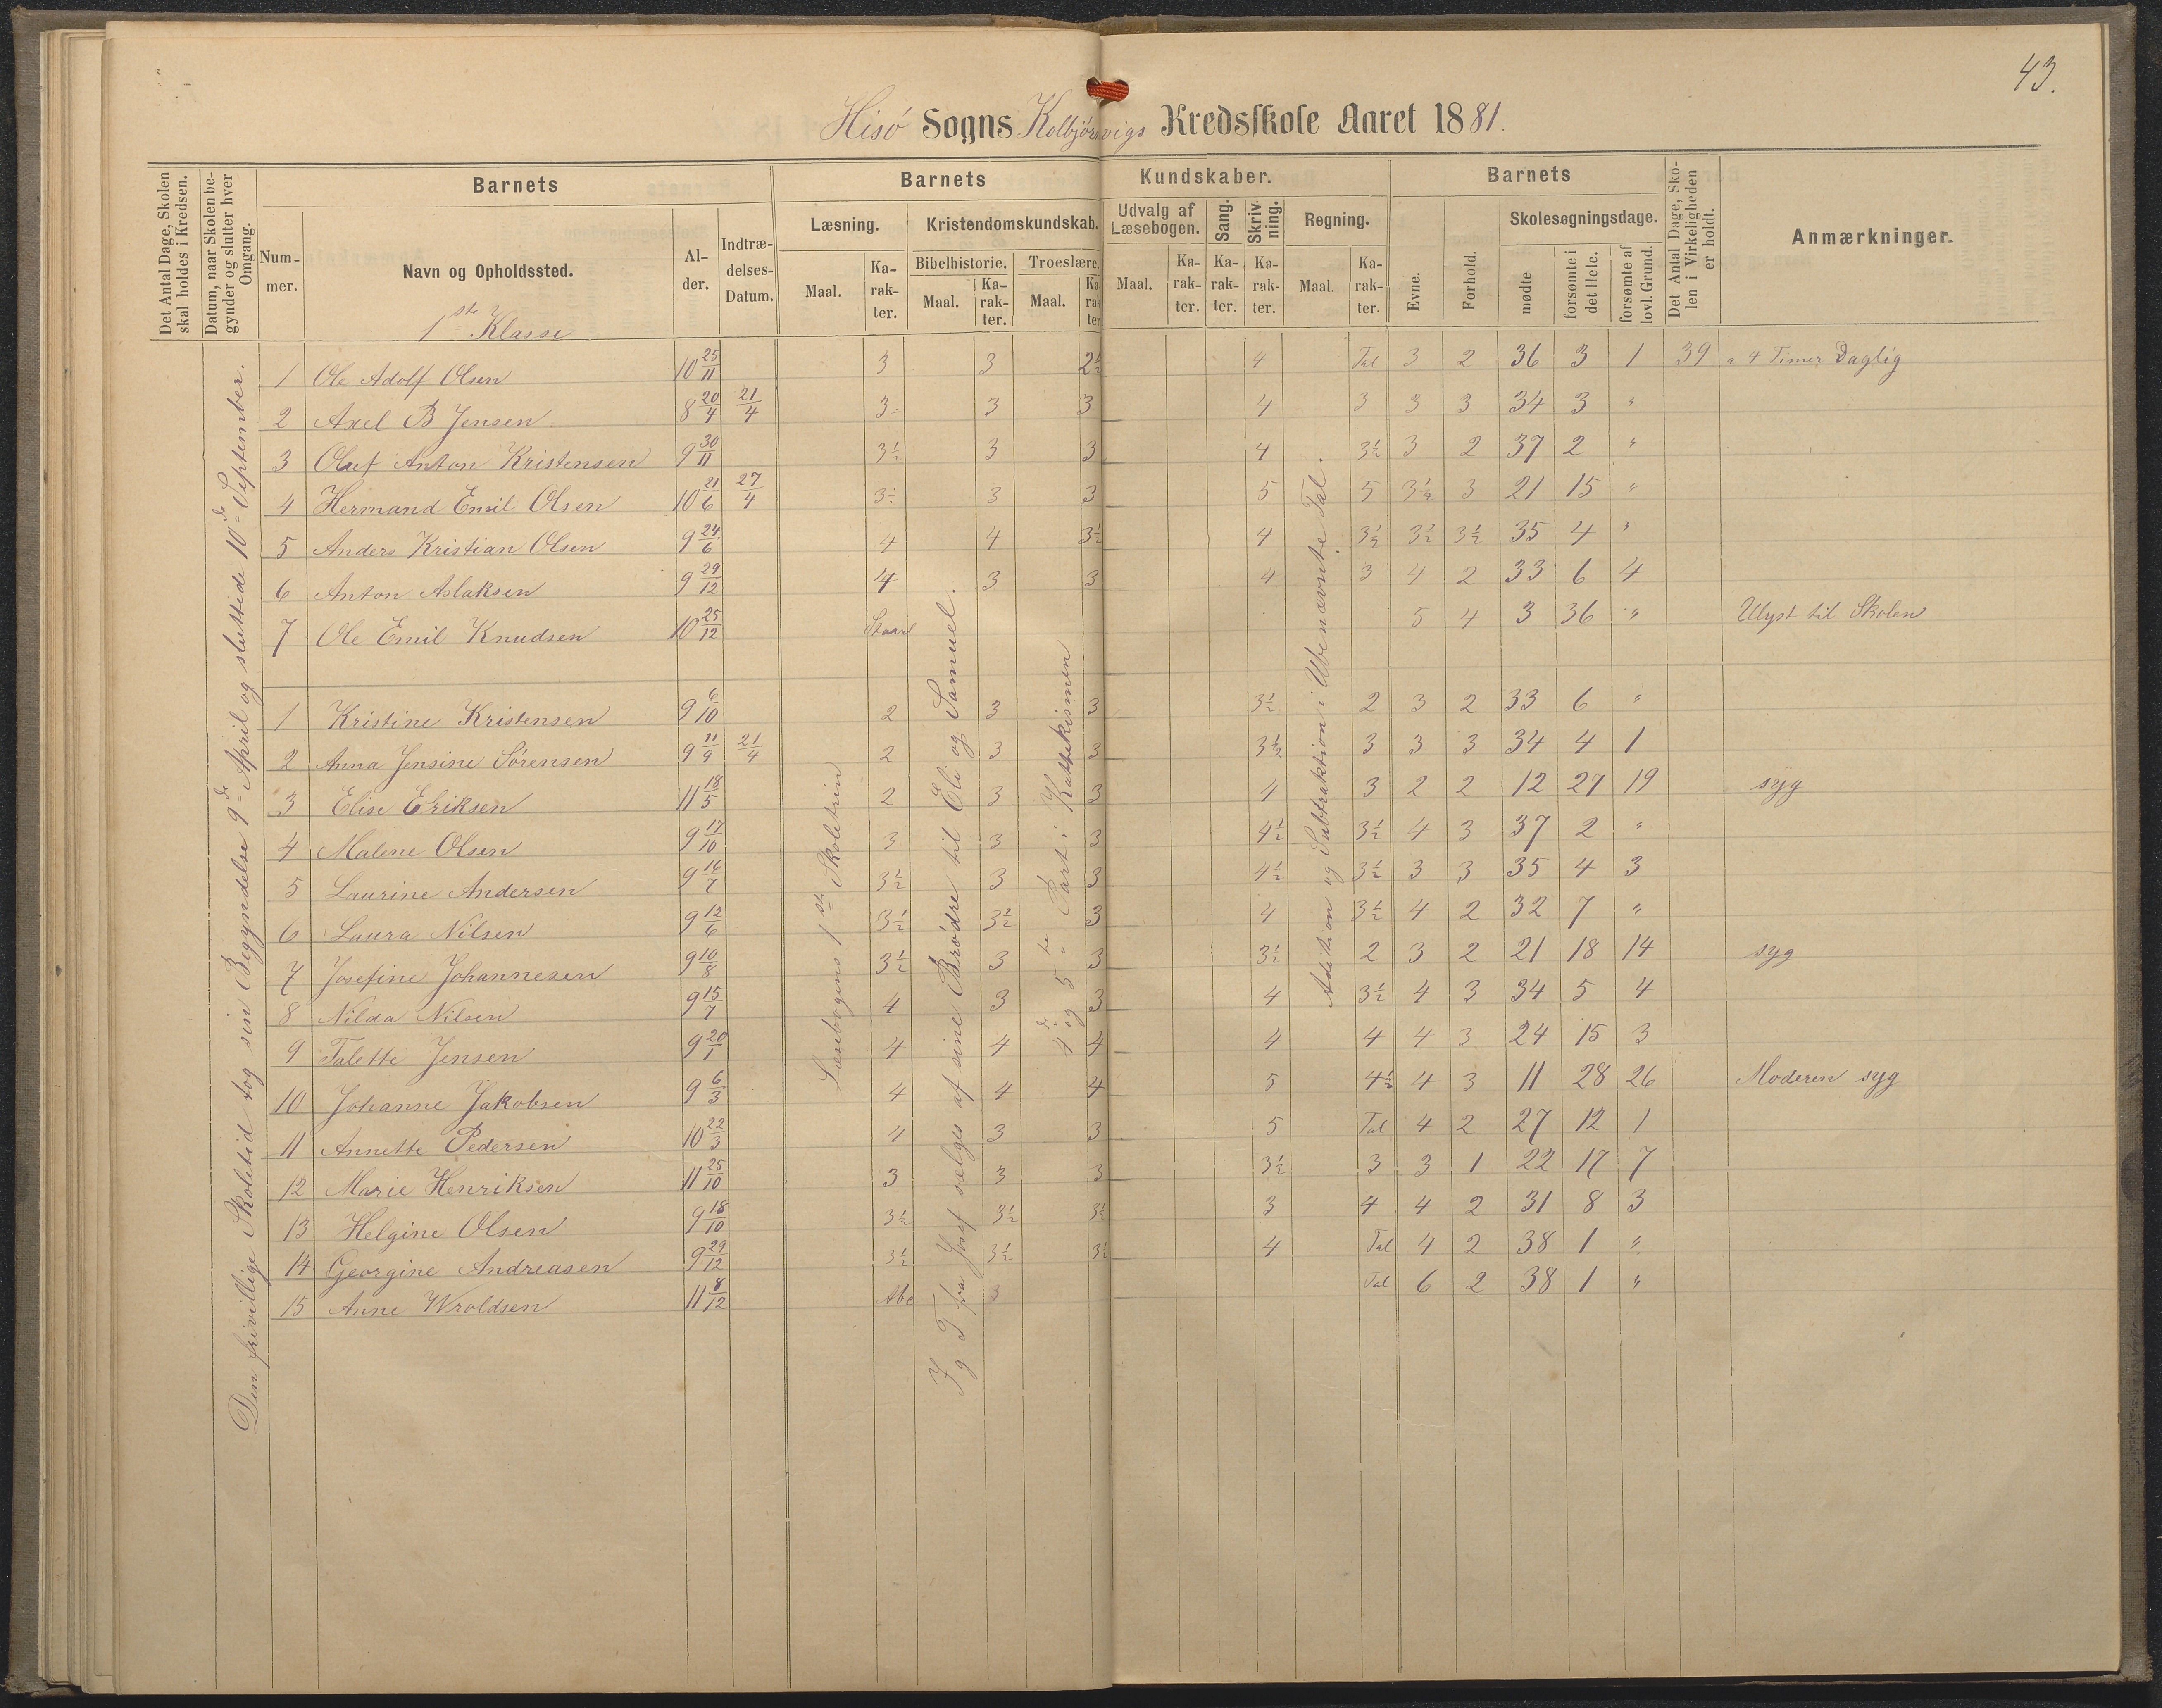 43.
Hisö Sogns Kolbjörnsvigs Kredsskole Aaret 1881.
Det Antal Dage, Skolen skal holdes i Kredsen.
Datum, naar Skolen begynder og slutter hver Omgang.
Barnets
Barnets Kundskaber.
Barnets
Det Antal Dage, Skolen i Virkeligheden er holdt.
Anmærkninger.
Nummer.
Navn og Opholdssted.
Alder.
Indtrædelses-Datum.
Læsning.
Kristendomskundskab.
Udvalg af Læsebogen.
Sang.
Skrivning.
Regning.
Evne.
Forhold.
Skolesøgningsdage.
Bibelhistorie.
Troeslære.
Maal. Karakter. Maal. Karakter. Maal. Karakter. Maal. Karakter. Karakter. Karakter. Maal. Karakter.
mødte
forsømte i det Hele.
forsømte af lovl. Grund.
1ste Klasse
Den frivillige Skoletid tog sin Begyndelse 9de April og sluttede 10de September.
Læsebogens 1ste Skoletrin
Fra Josef sælges af sine Brödre til Eli og Samuel.
4de og 5te Part i Kattekismen
Adition og Subtraktion i Ubenævnte Tal.
1 Ole Adolf Olsen 10 25/11 3 3 2½ 4 Tal 3 2 36 3 1 39 a 4 Timer Daglig
2 Axel B Jensen 8 20/4 21/4 3÷ 3 3 4 3 3 3 34 3 "
3 Oluf Anton Kristensen 9 30/11 3½ 3 3 4 3½ 3 2 37 2 "
4 Hermand Emil Olsen 10 21/6 27/4 3÷ 3 3 5 5 3½ 3 21 15 "
5 Anders Kristian Olsen 9 24/6 4 4 3½ 4 3½ 3½ 3½ 35 4 "
6 Anton Aslaksen 9 29/12 4 3 3 4 3 4 2 33 6 4
7 Ole Emil Knudsen 10 25/12 Staarl 5 4 3 36 " Ulyst til Skolen
1 Kristine Kristensen 9 6/10 2 3 3 3½ 2 3 2 33 6 "
2 Anna Jensine Sörensen 9 11/9 21/4 2 3 3 3½ 3 3 3 34 4 1
3 Elise Eriksen 11 18/5 2 3 3 4 3 2 2 12 27 19 syg
4 Malene Olsen 9 17/10 3 3 3 4½ 3½ 4 3 37 2 "
5 Laurine Andersen 9 16/7 3½ 3 3 4½ 3½ 3 3 35 4 3
6 Laura Nilsen 9 12/6 3½ 3½ 3 4 3½ 4 2 32 7 "
7 Josefine Johannesen 9 10/8 3½ 3 3 3½ 2 3 2 21 18 14 syg
8 Nilda Nilsen 9 15/7 4 3 3 4 3½ 4 3 34 5 4
9 Talette Jensen 9 20/1 4 4 4 4 4 4 3 24 15 3
10 Johanne Jakobsen 9 6/3 4 4 4 5 4½ 4 3 11 28 26 Moderen syg
11 Annette Pedersen 10 22/3 4 3 3 5 Tal 4 2 27 12 1
12 Marie Henriksen 11 25/10 3 3 3 3½ 3 3 1 22 17 7
13 Helgine Olsen 9 18/10 3½ 3½ 3½ 3 4 4 2 31 8 3
14 Georgine Andreasen 9 29/12 3½ 3½ 3½ 4 Tal 4 2 38 1 "
15 Anne Wroldsen 11 8/12 Abc 3 Tal 6 2 38 1 "